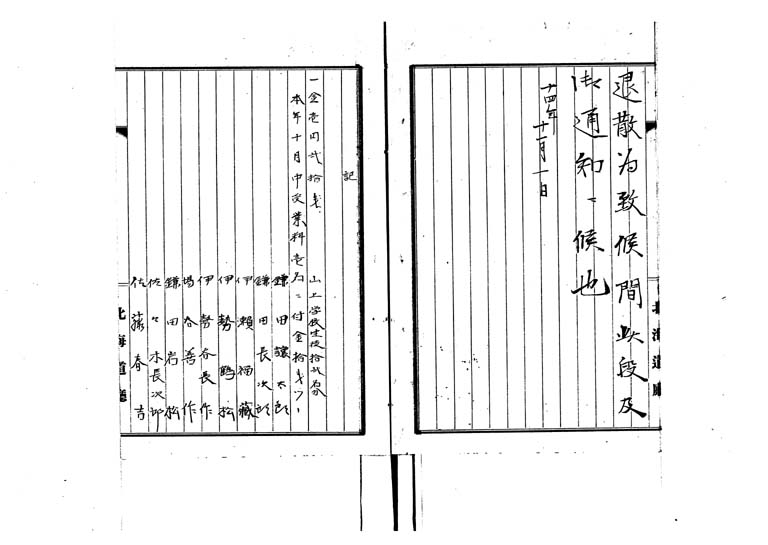 退散為致候間此段及
御通知候也
十四年十一月一日
北海道廳
記
一金壱円弐拾戔
山上学校生徒拾弐名分
本年十月中受業料壱名ニ付金拾戔ツヽ
鎌田譲太郎
鎌田長次郎
伊瀬福蔵
伊勢鶴松
伊勢谷長作
場谷善作
鎌田岩松
佐々木長次郎
佐藤春吉
北海道廳